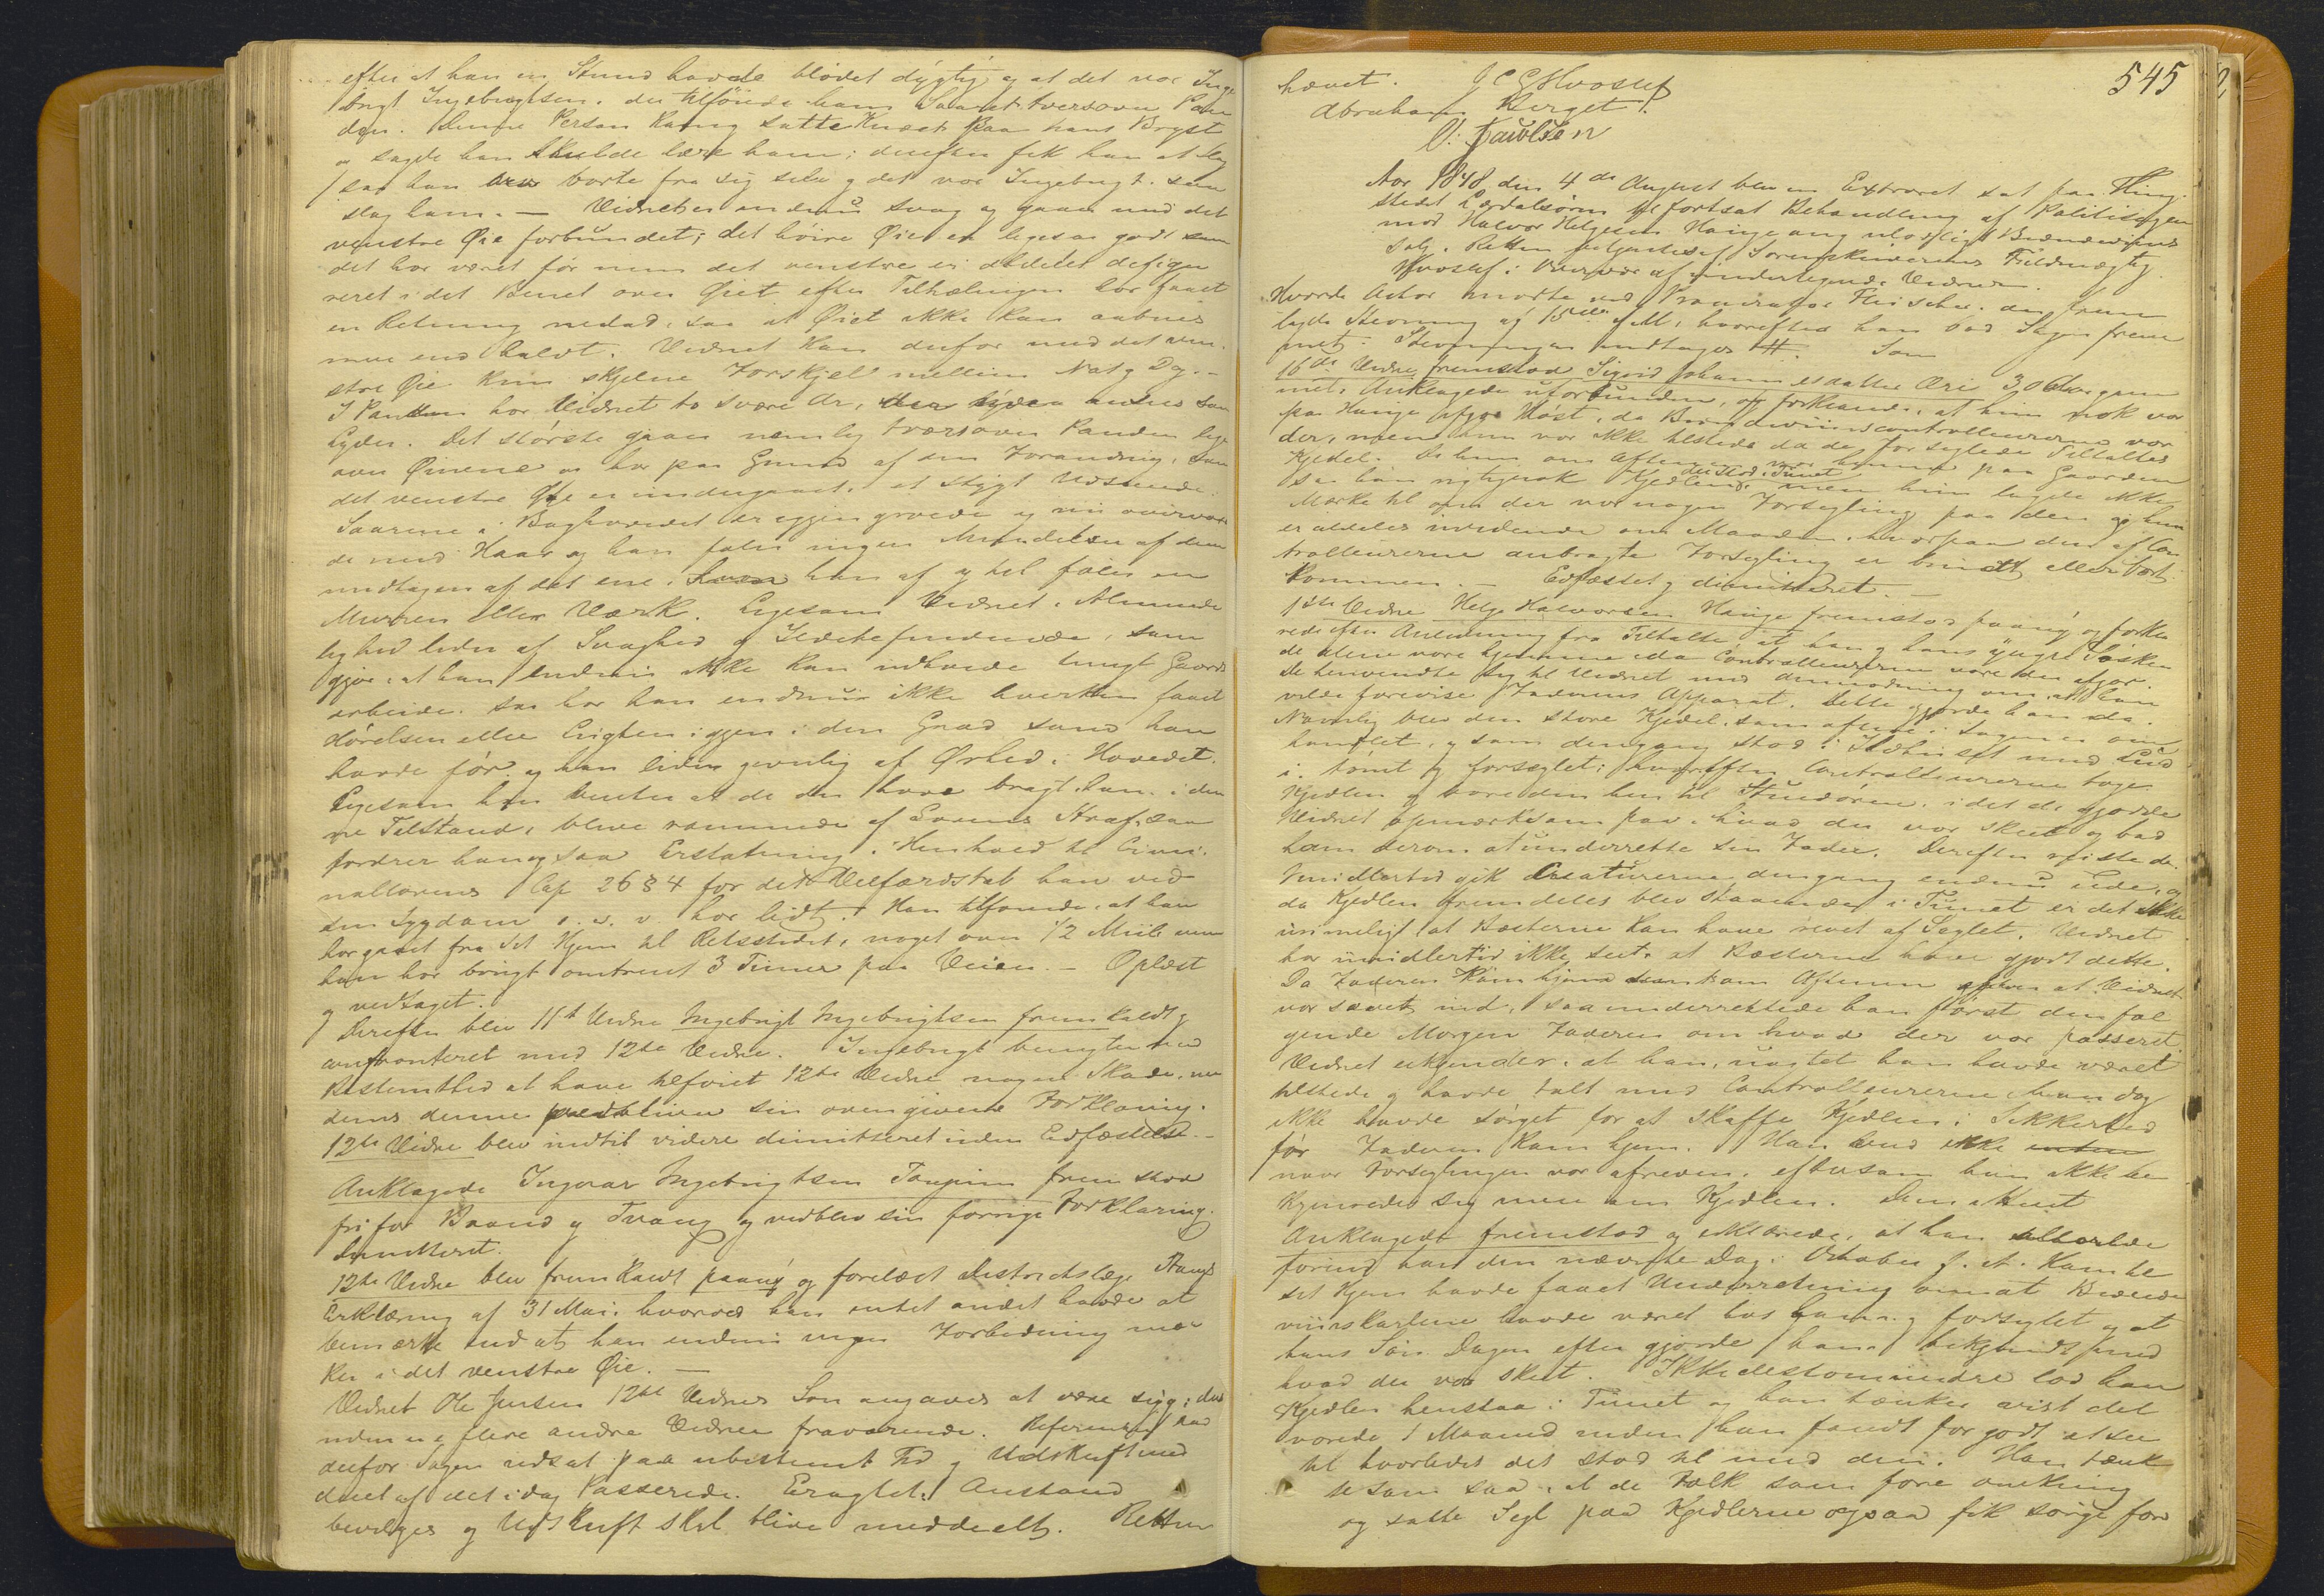 efter at han en Stund havde blödet dygtig og at det var Inge
brigt Ingebrigtsen, der tilföiede ham Saaret tversover Pan
den. Denne Person kaing satte Knæet paa hans Bryst
og sagde han skulde lære ham; derefter fik han et Slag
saa han blev borte fra sig selv og det var Ingebrigt som
slog ham. — Vidnet er endnu svag og gaaer med det
venstre Øie forbundet; det höire Øie er ligesaa godt som
det har været för men det venstre er aldeles defigu
reret i det Benet over Øiet efter Tilhælingen har faaet
en Retning nedad, saa at Øiet ikke kan aabnes
mere end halvt. Vidnet kan derfor med det ven
stre Øie kun skjelne Forskjel mellem Nat og Dag. —
I Panden har Vidnet to svære Ar,
lyder. Det störste gaaer nemlig tversover Panden lige
over Øinene og har paa Grund af sin Forandring, som
det venstre Øie er undergaaet, et stygt Udseende.
Saarene i Baghovedet er igjen groede og nu overvoxe
de med Haar og han föler ingen Mindelser af dem
undtagen af det ene, hvori han af og til föler en
Murren eller Værk. Ligesom Vidnet i Alminde
lighed lider af Svaghed og Ildebefindende, som
gjör, at han endnu ikke kan udholde tungt Gaards
arbeide, saa har han endnu ikke hverken faaet
Hörelsen eller Lugten igjen i den Grad som han
havde för og han lider jevnlig af Ørhed i Hovedet.
Ligesom han venter at de der have bragt ham i den
ne Tilstand, blive rammede af Lovens Straf, saa
fordrer han ogsaa Erstatning i Henhold til Crimi
nallovens Cap 26 § 4 for det Velfærdstab han ved
sin Sygdom o. s. v. har lidt. Han tilföiede, at han
har gaaet fra sit Hjem til Retsstedet, noget over 1/2 Miil men
han har brugt omtrent 3 Timer paa Veien — Oplæst
og vedtaget.
Derefter blev 11te Vidne Ingebrigt Ingebrigtsen fremkaldt og
confronteret med 12te Vidne. Ingebrigt benegtede med
Bestemthed at have tilföiet 12te Vidne nogen Skade, me
dens denne vedbliver sin ovengivene Forklaring.
12te Vidne blev indtil videre dimitteret uden Eedfæstelse. —
Anklagede Ingvar Ingebrigtsen fremstod
fri for Baand og Tvang og vedblev sin forrige Forklaring.
Dimitteret.
12te Vidne blev fremkaldt paany og forelæst Districtslæge
Erklæring af 31 Mai, hvorved han intet andet havde at
bemærke end at han endnu ingen Forbedring mær
ker i det venstre Øie. —
Vidnet Ole Jensen 12te Vidnes Sön angaves at være syg; des
uden ere flere andre Vidner fraværende. Referenten bad
derfor Sagen udsat paa ubestemt Tid og Udskrift med
deelt af det i Dag Passerede. Eragtet: Anstand
bevilges og Udskrift skal blive meddeelt. Retten
545
hævet. J C G Hvoslef
Abraham Berget.
O: Paulsen
Aar 1848 den 4de August blev en Extraret sat paa Thing
stedet Lærdalsören til fortsat Behandling af Politisagen
mod Halvor Helgesen Hauge ang ulovligt Brændeviins
Salg. Retten betjentes af Sorenskriverens Fuldmægtig
Hvoslef i Overvær af undertegnede Vidner.
Hvorda Actor mödte ved Procurator Fleischer, der frem
lagde Stevning af 15de f. M., hvorefter han bad Sagen frem
met. Stevningen indtages H. Som
16de Vidne fremstod Sigrid Johannesdatter Øri 30 Aar gam
mel, Anklagede uforbunden, og forklarede, at hun nok var
paa Hauge ifjor Höst, da Brændeviinscontrolleurerne var
der, men hun var ikke tilstede da de forseglede Tiltaltes
Kjedel. Da hun om Aftenen kom hjem paa Gaarden
saa hun rigtignok Kjedlen, der stod i Tunet men hun lagde ikke
Mærke til om der var nogen Forsegling paa den og hun
er aldeles uvidende om Maaden, hvorpaa den af Con
trolleurerne anbragte Forsegling er brudt eller bort
kommen. — Eedfæstet og dimitteret. —
1ste Vidne Helge Halvorsen Hauge fremstod paany og forkla
rede efter Anledning fra Tiltalte at han og hans yngre Södsken
de alene vare hjemme da Controlleurerne vare der ifjor.
De henvendte sig til Vidnet med Anmodning om, at han
vilde forevise Faderens Apparat. Dette gjorde han da.
Navnlig blev den store Kjedel, som oftere i Sagen er om
handlet, og som dengang stod i Ildhuset med Lud
i, tömt og forseglet; hvorefter Controlleurerne toge
Kjedlen og bare den hen til Stuedören, i det de gjorde
Vidnet opmærksom paa, hvad der var skeet og bad
ham derom at underrette sin Fader. Derefter reiste de.
Imidlertid gik Creaturerne dengang endnu ude, og
da Kjedlen fremdeles blev staaende i Tunet er det ikke
urimeligt at Hesterne kan have revet af Seglet. Vidnet
har imidlertid ikke seet, at Hesterne have gjort dette.
Da Faderen kom hjem samme Aften efter at Vidnet
var sovet ind, saa underrettede han först den föl
gende Morgen Faderen om hvad der var passeret.
Vidnet erkjender, at han, uagtet han havde været
tilstede og havde talt med Controlleurerne han dog
ikke havde sörget for at skaffe Kjedlen i Sikkerhed
för Faderen kom hjem. Han veed ikke
naar Forseglingen var afreven, eftersom han ikke be
kymrede sig mere om Kjedlen. Dimitteret
Anklagede fremstod og erklærede, at han allerede
forind han den nævnte Dag i Octaber f. A. kom til
sit Hjem havde faaet Underretning om at Brænde
viinskarlene havde været hos ham og forseglet og at
hans Sön Dagen efter gjorde ham bekjendt med
hvad der var skeet. Ikkedestomindre lod han
Kjedlen henstaa i Tunet og han tænker vist det
varede 1 Maaned inden han fandt for godt at see
til hvorledes det stod til med den. Han tænk
te som saa, at de Folk som fore omkring
og satte Segl paa Kjedlerne ogsaa fik sörge for